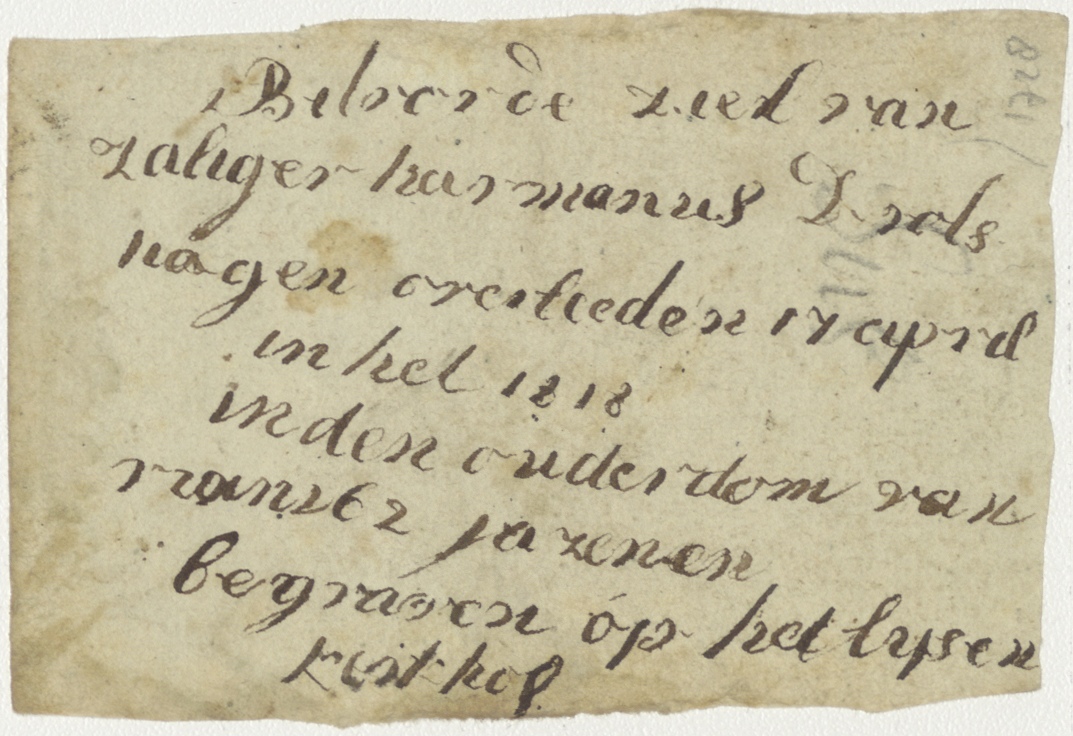 Bidvor de ziel van
zaliger harmanus Drols
hagen overlieden 17 april
in het 1818
in den ouderdom van
van 62 jaren en
begraven op het lijsen
kerk hof